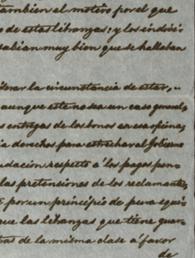 tambien al motivo por el que
de estas libranzas; y los individ
sabian muy bien que se hallaban
la circunstancia de estar,
aunque este no sea un caso
entregas de los bonos en esa oficina,
derechos para estrechar al Gobierno
respecto á los pagos
las pretenciones de los reclamantes
por un principio de pura equi
que las libranzas que tiene
de la misma clase á favor
de